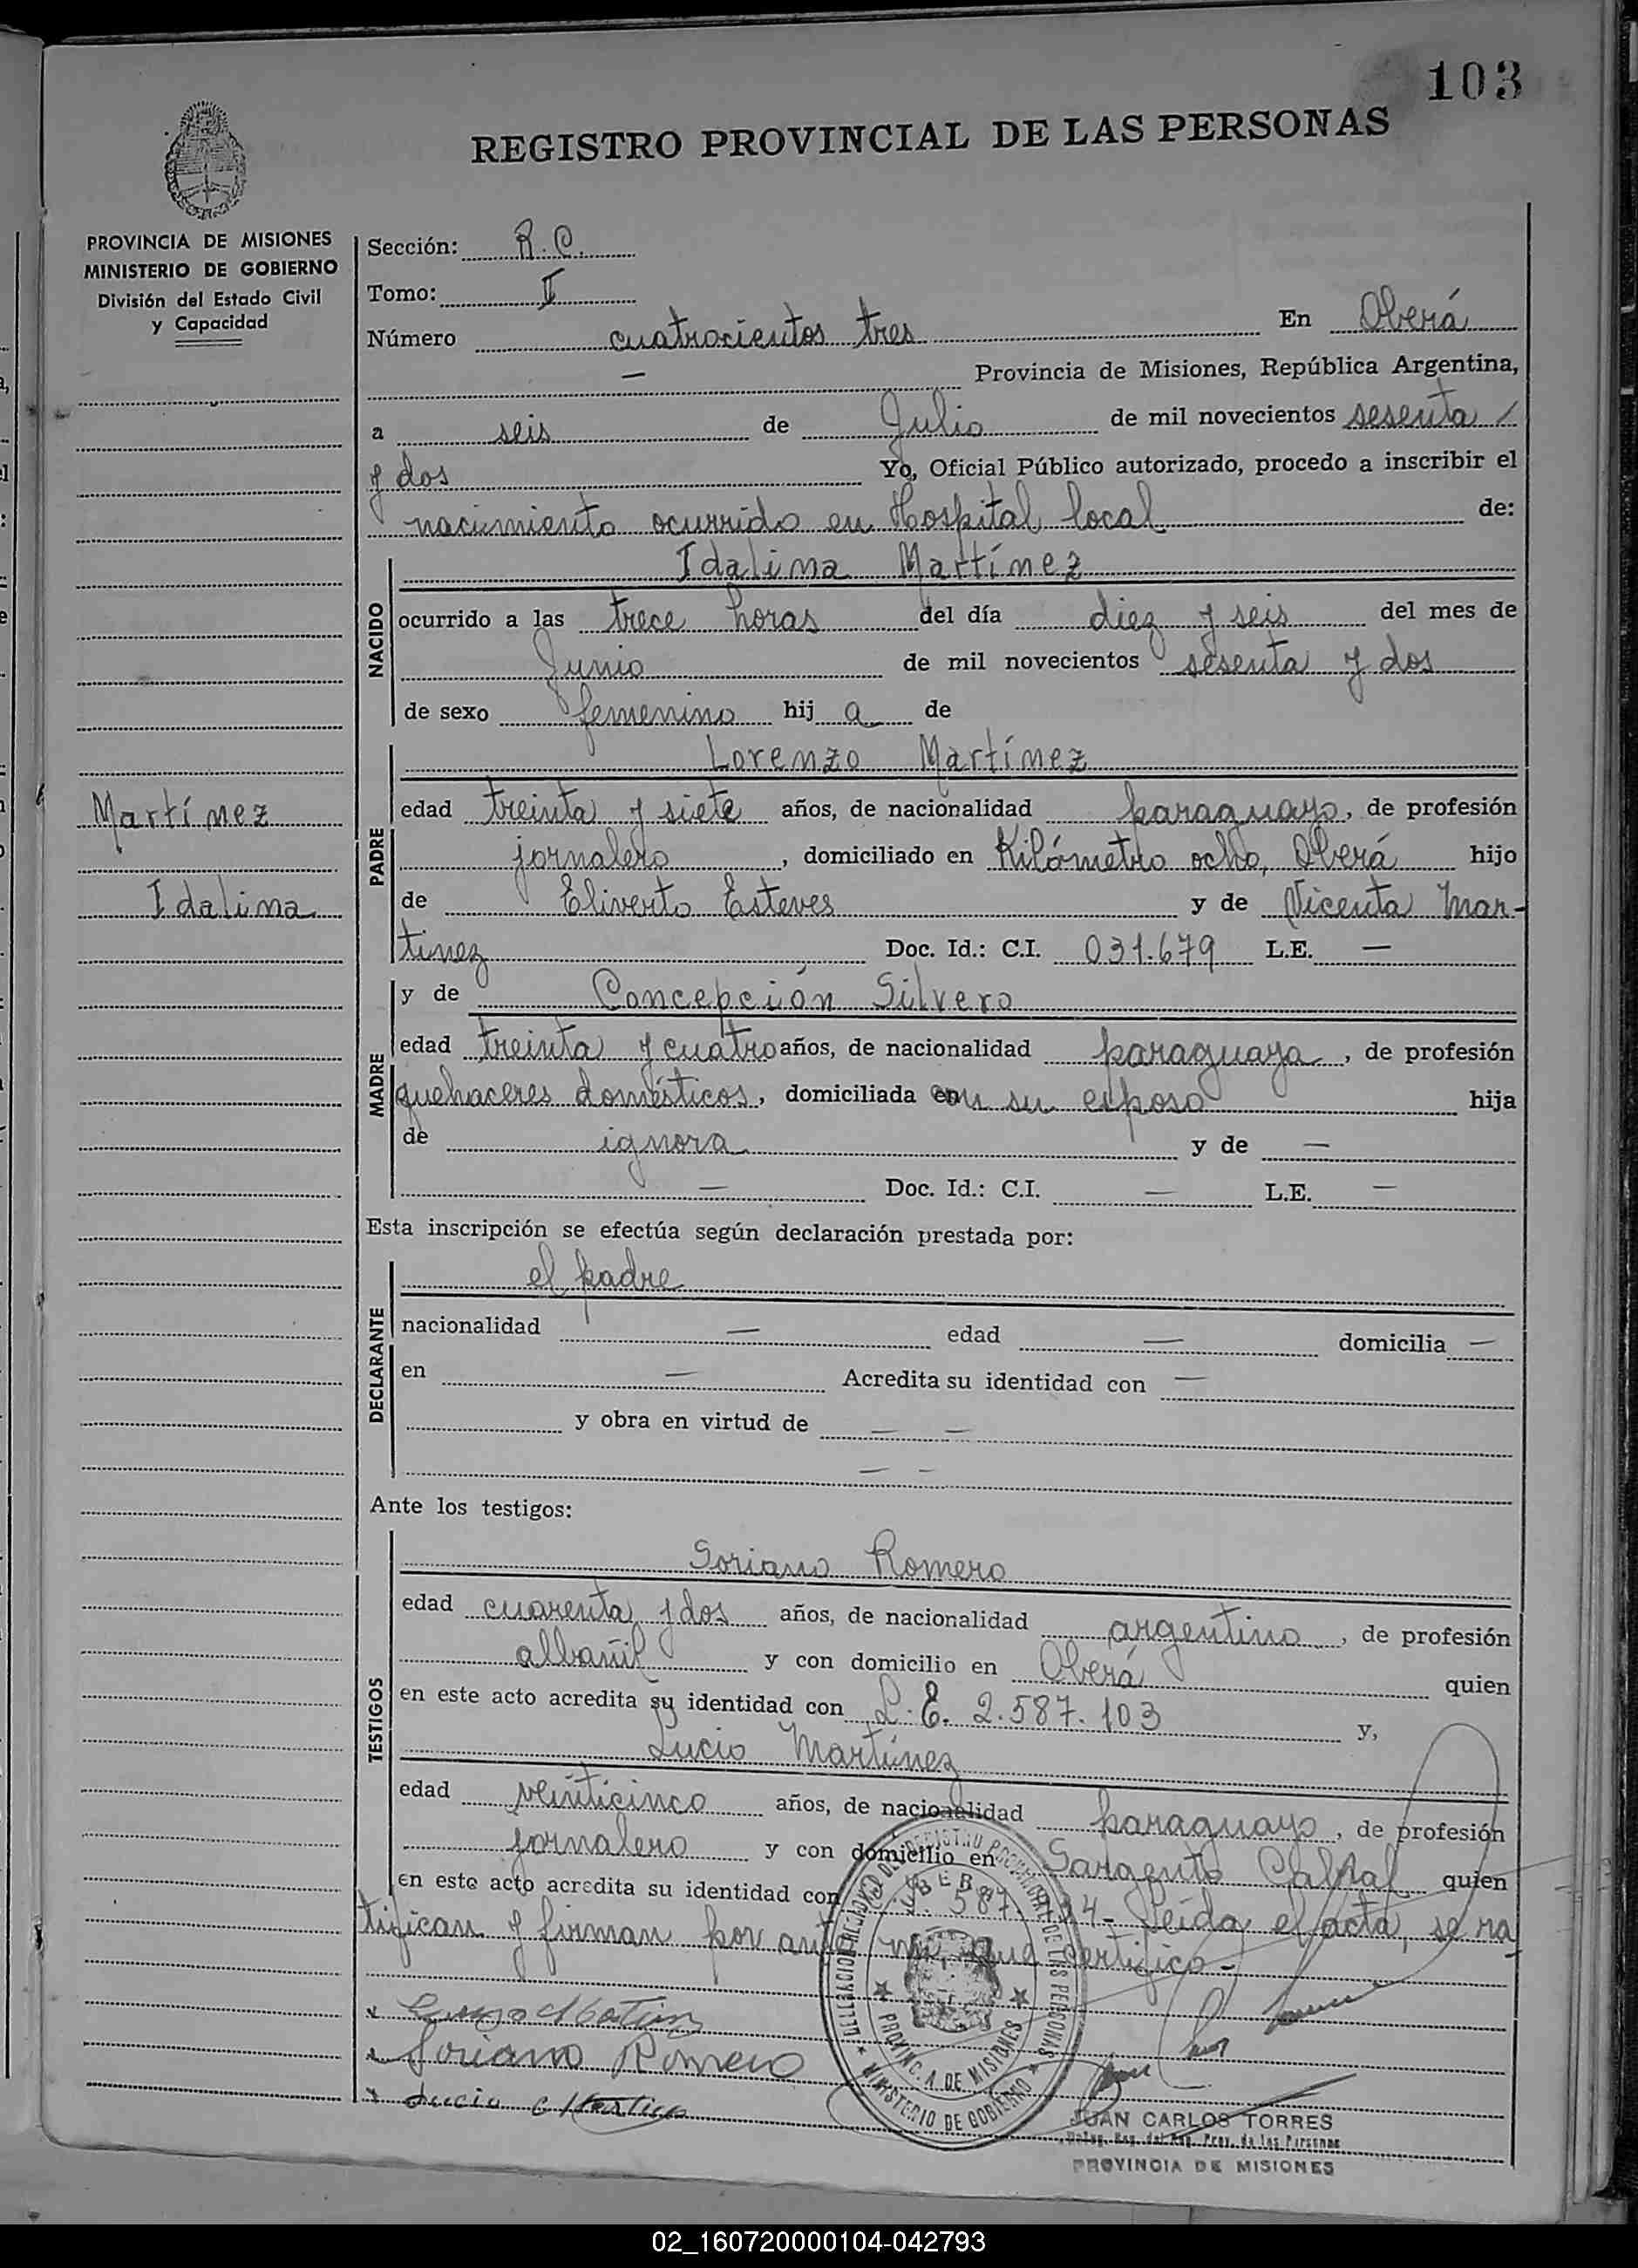 103
REGISTRO PROVINCIAL DE LAS PERSONAS
PROVINCIA DE MISIONES
MINISTERIO DE GOBIERNO
División del Estado Civil
y Capacidad
Martínez
Idalina
Sección: R.C.
Tomo: I
Número cuatrocientos tres En Oberá
— Provincia de Misiones, República Argentina,
a seis de Julio de mil novecientos sesenta /
y dos Yo, Oficial Público autorizado, procedo a inscribir el
nacimiento ocurrido en Hospital local de:
NACIDO
Idalina Martínez
ocurrido a las trece horas del día diez y seis del mes de
Junio de mil novecientos sesenta y dos
de sexo femenino hij a de
PADRE
Lorenzo Martínez
edad treinta y siete años, de nacionalidad paraguayo, de profesión
jornalero, domiciliado en Kilómetro ocho, Oberá hijo
de Eliverto Esteves y de Vicenta Mar-
tinez Doc. Id.: C.I. 031.679 L.E. —
MADRE
y de Concepción Silvero
edad treinta y cuatro años, de nacionalidad paraguaya, de profesión
quehaceres domésticos, domiciliada con su esposo hija
de ignora y de —
— Doc. Id.: C.I. — L.E. —
Esta inscripción se efectúa según declaración prestada por:
DECLARANTE
el padre
nacionalidad — edad — domicilia —
en — Acredita su identidad con —
y obra en virtud de — —
— —
Ante los testigos:
TESTIGOS
Soriano Romero
edad cuarenta y dos años, de nacionalidad argentino, de profesión
albañil y con domicilio en Oberá quien
en este acto acredita su identidad con L.E. 2.587.103 y,
Lucio Martínez
edad veinticinco años, de nacionalidad paraguayo, de profesión
jornalero y con domicilio en Sargento Cabral quien
en este acto acredita su identidad con 587. 4- Leída el acta, se ra-
tifican y firman por ante mí que certifico-
Soriano Romero
Lucio
MINISTERIO DE GOBIERNO
PROVINCIA DE MISIONES
JUAN CARLOS TORRES
Prov. de las Personas
PROVINCIA DE MISIONES
02_160720000104-042793